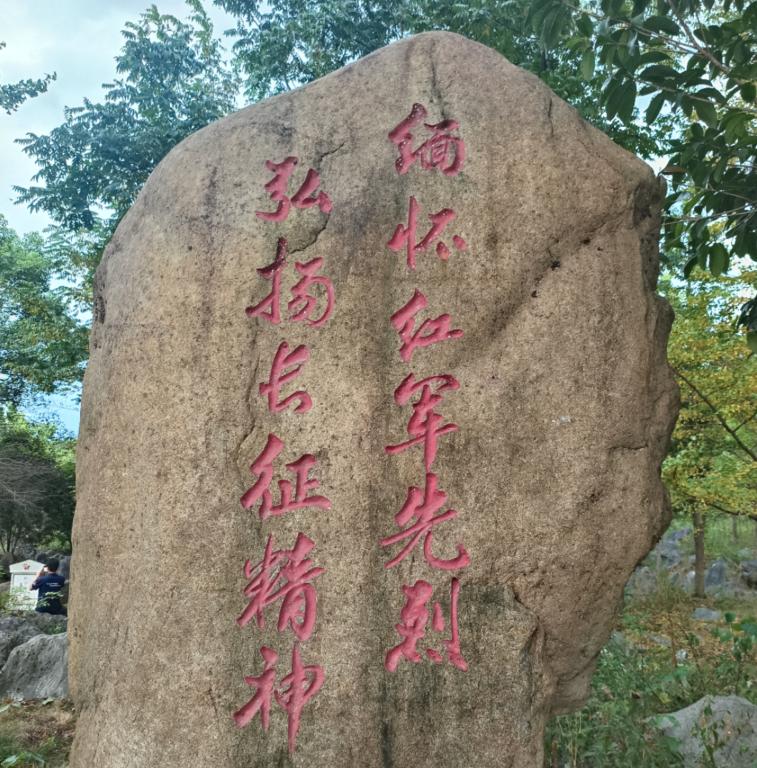 缅怀红军先烈
弘扬长征精神